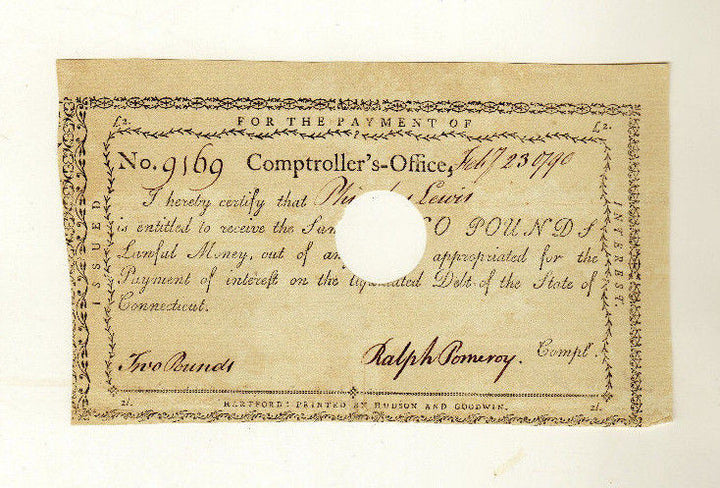 £2. FOR THE PAYMENT OF £2.
ISSUED
INTEREST.
No. 9169 Comptroller's-Office, Feby 23 1790
I hereby certify that Lewis
is entitled to receive the POUNDS
Lawful Money, out of appropriated for the
Payment of interest on the liquidated Debt of the State of
Connecticut.
Two Pounds Ralph Pomeroy. Compt.
2l. HARTFORD: PRINTED BY HUDSON AND GOODWIN. 2l.